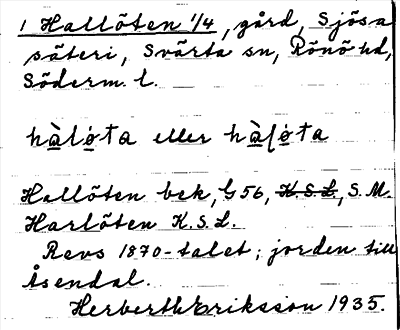 1 Hallöten 1/4, gård, Sjösa
säteri, Svärta sn, Rönö hd,
Söderm. l.
hàlø̀ta eller hàlø̀ta
Hallöten bek, G 56, K.S.L., S.M.
Harlöten K.S.L.
Revs 1870-talet; jorden till
Åsendal.
Herberth Eriksson 1935.